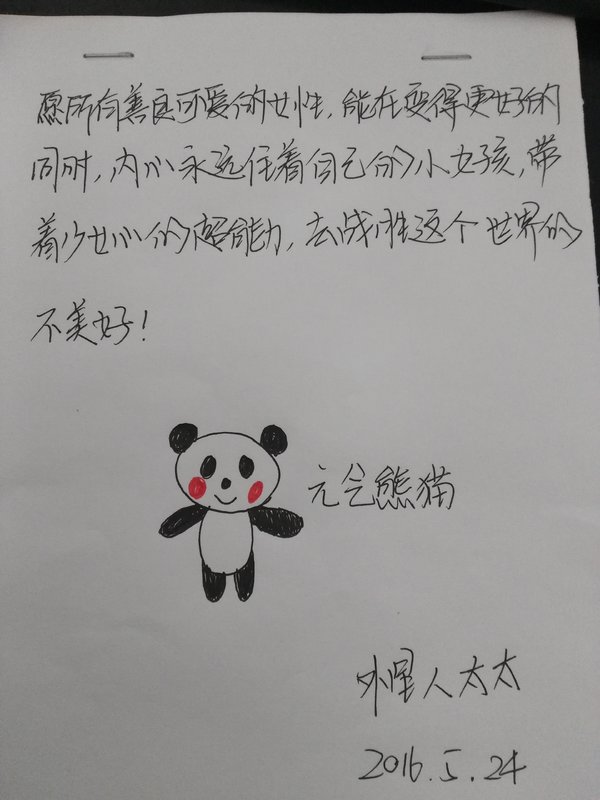 愿所有善良可爱的女性,能在变得更好的
同时,内心永远住着自己的小女孩,带
着少女心的超能力,去战胜这个世界的
不美好!
元气熊猫
外星人太太
2016.5.24